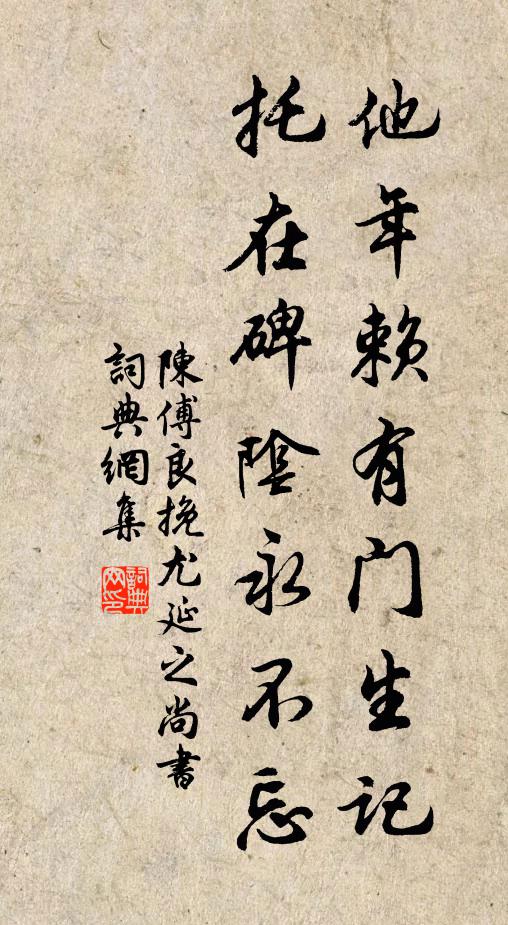 他年赖有门生记
托在碑陰永不忘
陳傅良挽尤延之尚書
詞典網集
詞典网印